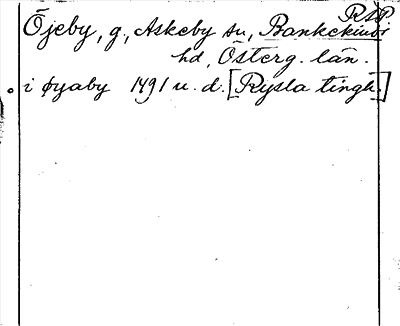 RSP.
Öjeby, g., Askeby sn, Bankekinds
hd, Österg. län.
i øyaby 1491 u. d. [Rysla tingh.]